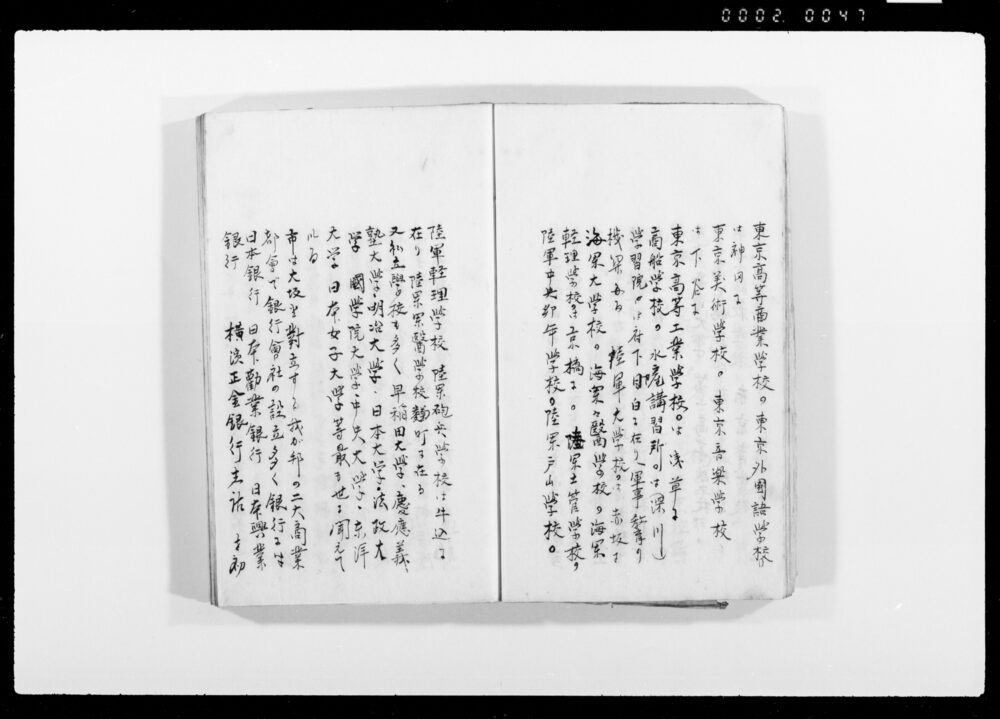 0002 0047
東京高等商業学校。東京外國語学校
は神田に
東京美術学校。東京音楽学校
は下谷に
東京高等工業学校。は浅草に
商船学校。水産講習所。は深川に
学習院。は府下目白に在り軍事教育の
機関なる 陸軍大学校。は赤坂に
海軍大学校。海軍々醫学校。海軍
経理学校は京橋に。陸軍士官学校。
陸軍中央幼年学校。陸軍戸山学校。
陸軍経理学校 陸軍砲兵学校は牛込に
在り 陸軍軍醫学校麹町に在る
又私立學校も多く 早稲田大学、慶應義
塾大学、明治大学、日本大学、法政大
学 國学院大学、中央大学、東洋
大学 日本女子大学等最も世に聞えて
いる
市は大坂と對立する我が邦の二大商業
都會で銀行會社の設立多く銀行には
日本銀行 日本勧業銀行 日本興業
銀行 横濱正金銀行